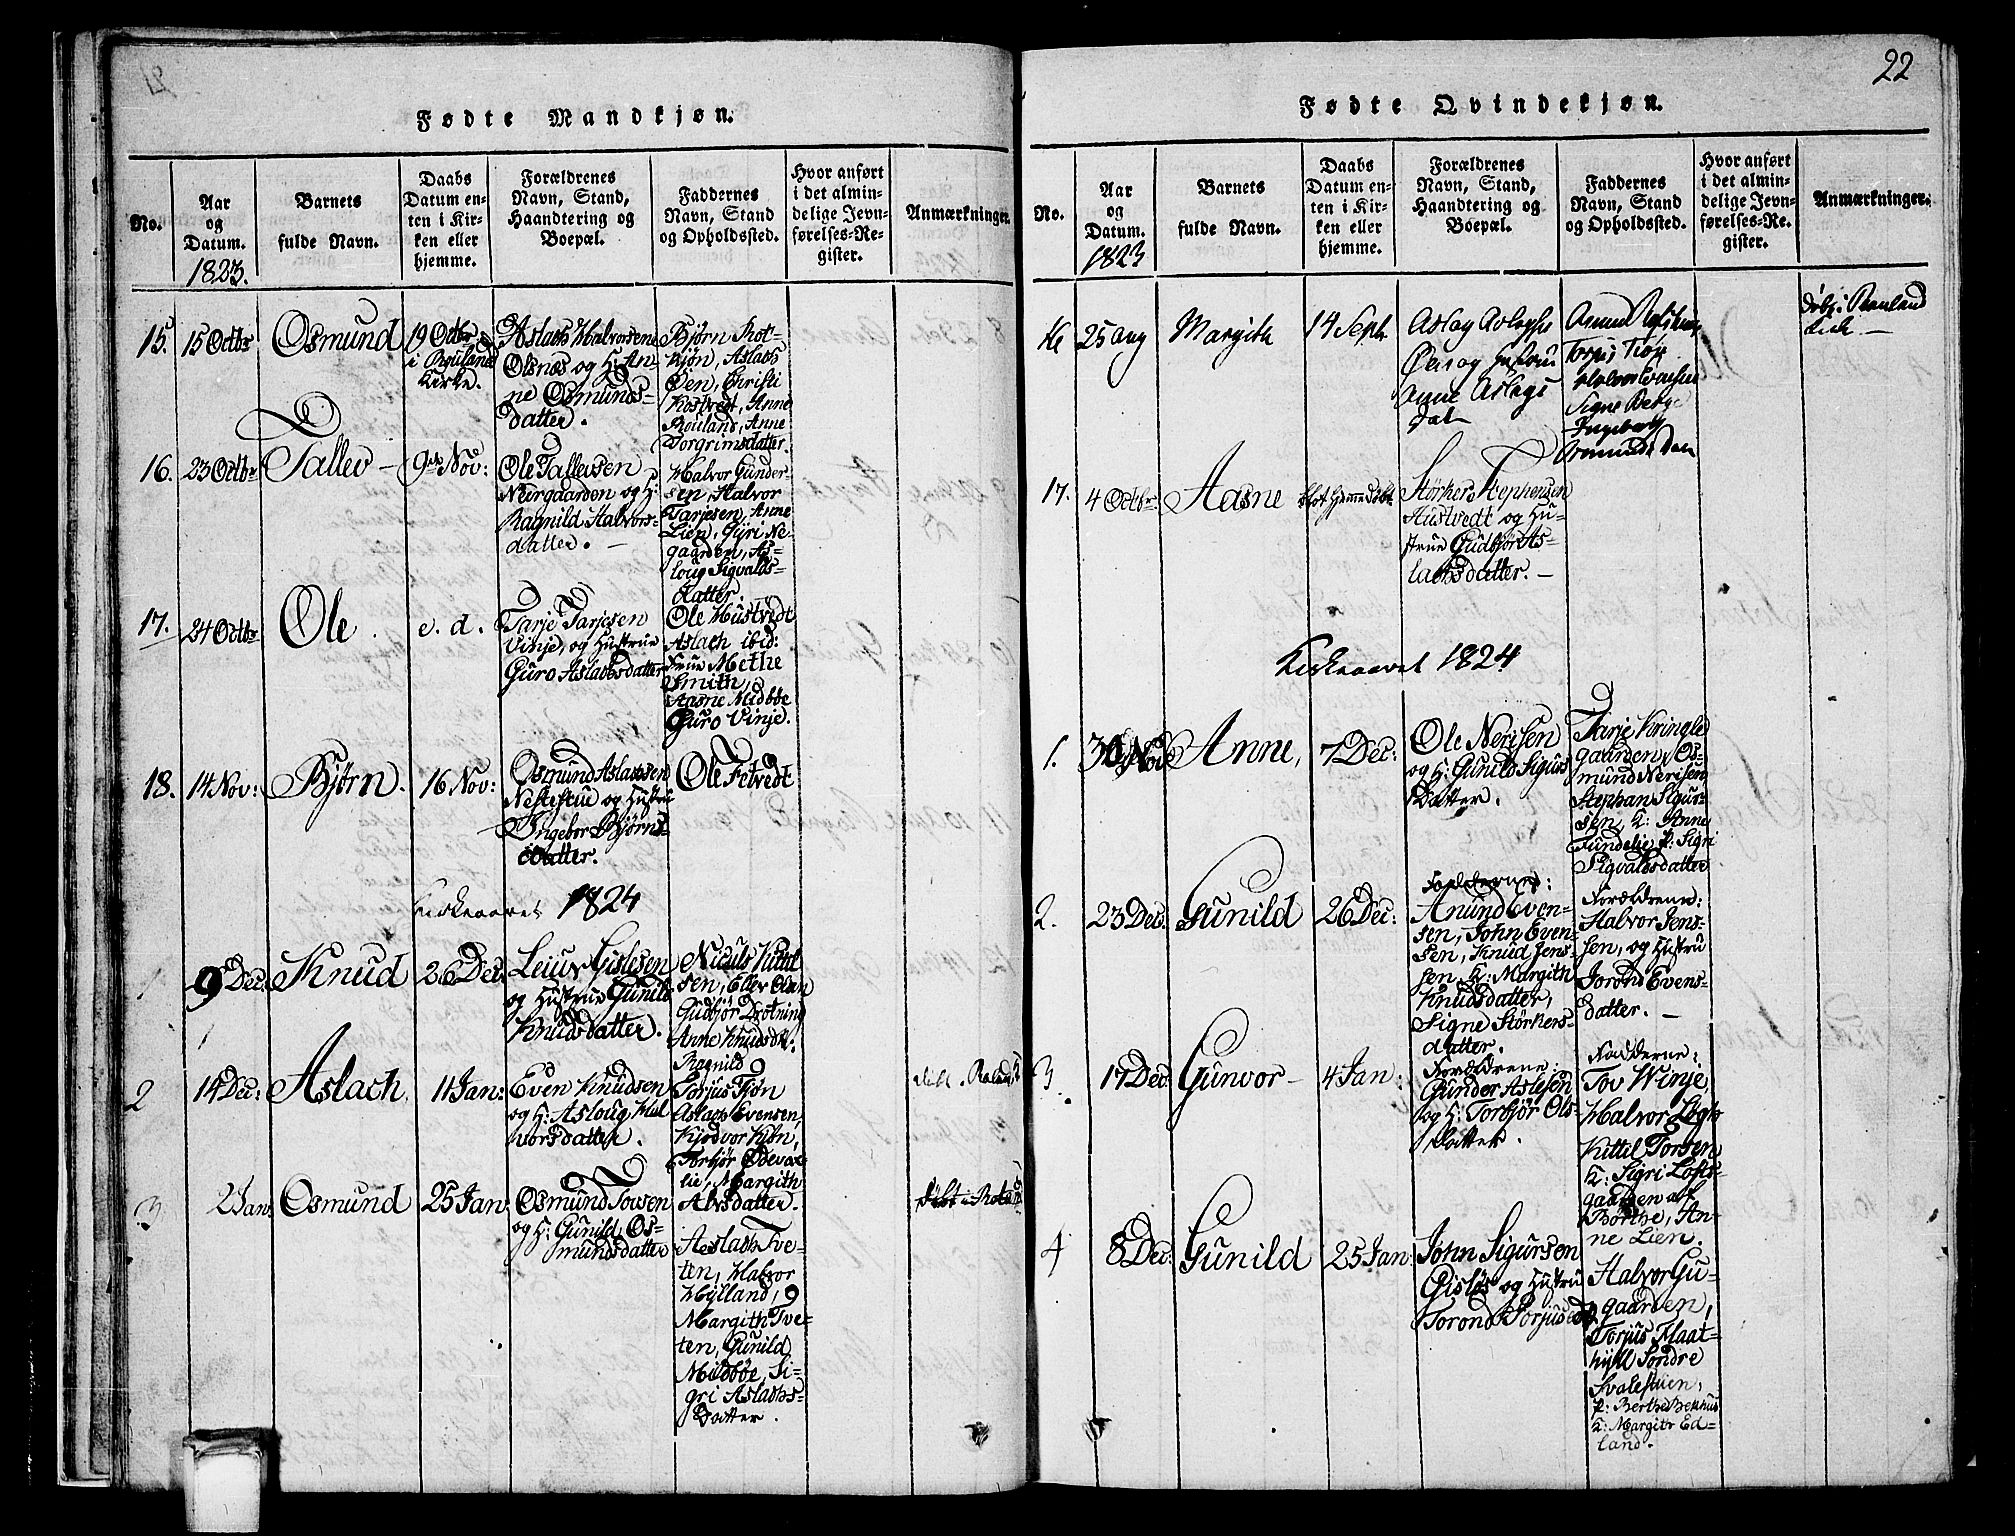 Fødte Mandkjøn.
No.
Aar
og
Datum.
1823.
Barnets
fulde Navn.
Daabs
Datum en-
ten i Kir-
ken eller
hjemme.
Forældrenes
Navn, Stand,
Haandtering og
Boepæl.
Faddernes
Navn, Stand
og Opholdssted.
Hvor anført
i det almin-
delige Jevn-
førelses-Re-
gister.
Anmærkninger.
15.
15 Octbr
Osmund
19 Octbr
i Rouland
Kirke.
Aslach Halvorsen
Olsnes og H: An-
ne Osmunds-
datter.
Bjørn Rot-
kjøn, Aslach
Øen, Christi
Kostvedt, Anne
Rouland, Anne
Torgrimsdatter.
16.
23 Octbr
Tallev
9de Nov:
Ole Tallevsen
Neirgaarden og H:
Ragnild Halvors-
datter.
Halvor Gunder-
sen, Halvor
Tarjesen, Anne
Lien, Gjri Ne-
gaarden, As-
loug Sigvalds-
datter.
17.
24 Octbr
Ole
e. d.
Tarje Tarjesen
Vinje, og Hustrue
Guro Aslachsdatter
Ole Hustvedt
Aslach ibid:
Frue Methe
Smith,
Aasne Midbøe
Guro Vinje.
18.
14 Nov:
Bjørn.
16 Nov:
Osmund Aslachsen
Nestestue og Hustru
Ingebor Bjørns-
datter.
Ole Fetvedt
Kirkeaaret 1824
1
9 Dec:
Knud
26 Dec:
Leiuv Gislesen
og Hustrue Gunild
Knudsdatter.
Niculs Kittil
sen, Ellev
Gudbjør Drotning
Anne Knudsdtr:
Ragnild
2
14 Dec:
Aslach.
11 Jan:
Even Knudsen
og H: Asloug Hal
vorsdatter.
Torjus Tjøn
Aslach Evensen,
Kjødvor Kjøn,
Torbjør Ødevas-
lie, Margith
Alvsdatter.
3
2 Jan:
Osmund
25 Jan:
Osmund Tovsen
og H: Gunild Os-
mundsdatter
Aslach Tve-
ten, Halvor
Hylland,
Margith Tve-
ten, Gunild
Midbøe, Si-
gri Aslachs-
datter.
22
Fødte Qvindekjøn.
No.
Aar
og
Datum.
1823
Barnets
fulde Navn.
Daabs
Datum en-
ten i Kir-
ken eller
hjemme.
Forældrenes
Navn, Stand,
Haandtering og
Boepæl.
Faddernes
Navn, Stand
og Opholdssted.
Hvor anført
i det almin-
delige Jevn-
førelses-Re-
gister.
Anmærkninger.
16
25 Aug
Margith
14 Septr
Aslag Aslagss
Øen og Hustru
Anne Aslags
Dat
Signe Berge
Ingeborg
Osmunds Datt
Døbt i Rauland
Kirke
17.
4 Octbr
Aasne
blot Hjemmedøbt
Størker Stephensen
Hustvedt og Hu-
strue Gudbjør As-
lachsdatter.
Kirkeaaret 1824
1.
30 Nov
Anne,
7 Dec:
Ole Nerisen
og H: Gunild Sigurs
Datter.
Tarje Kringle
gaarden, Os-
mund Nerisen
Stephan Sigur-
sen, K: Anne
Fundelie P: Sigri
Sigvaldsdatter
2.
23 Dec.
Gunild
26 Dec:
Fadderne:
Anund Even-
sen, John Even-
sen, Knud Jens-
sen, K: Margith
Knudsdatter,
Signe Størkers-
datter.
Forældrene:
Halvor Jens-
sen, og Hustru
Jorond Evens-
datter.
3.
17 Dec
Gunvor
4 Jan:
Forældrene:
Gunder Aslesen
og H: Torbjør Ols-
datter.
Fadderne:
Tov Winje
Halvor
Kittil Torsen
K: Sigri Lofts-
gaarden
Børthe, An-
ne Lien.
4
8 Dec:
Gunild
25 Jan:
John Sigursen
Gisløs og Hustru
Torond Torjusd
Halvor Gu-
gaarden,
Torjus Flaat-
hyll Sondre
Svalestuen,
P: Berthe Bekhus
K: Margith Ed-
land.